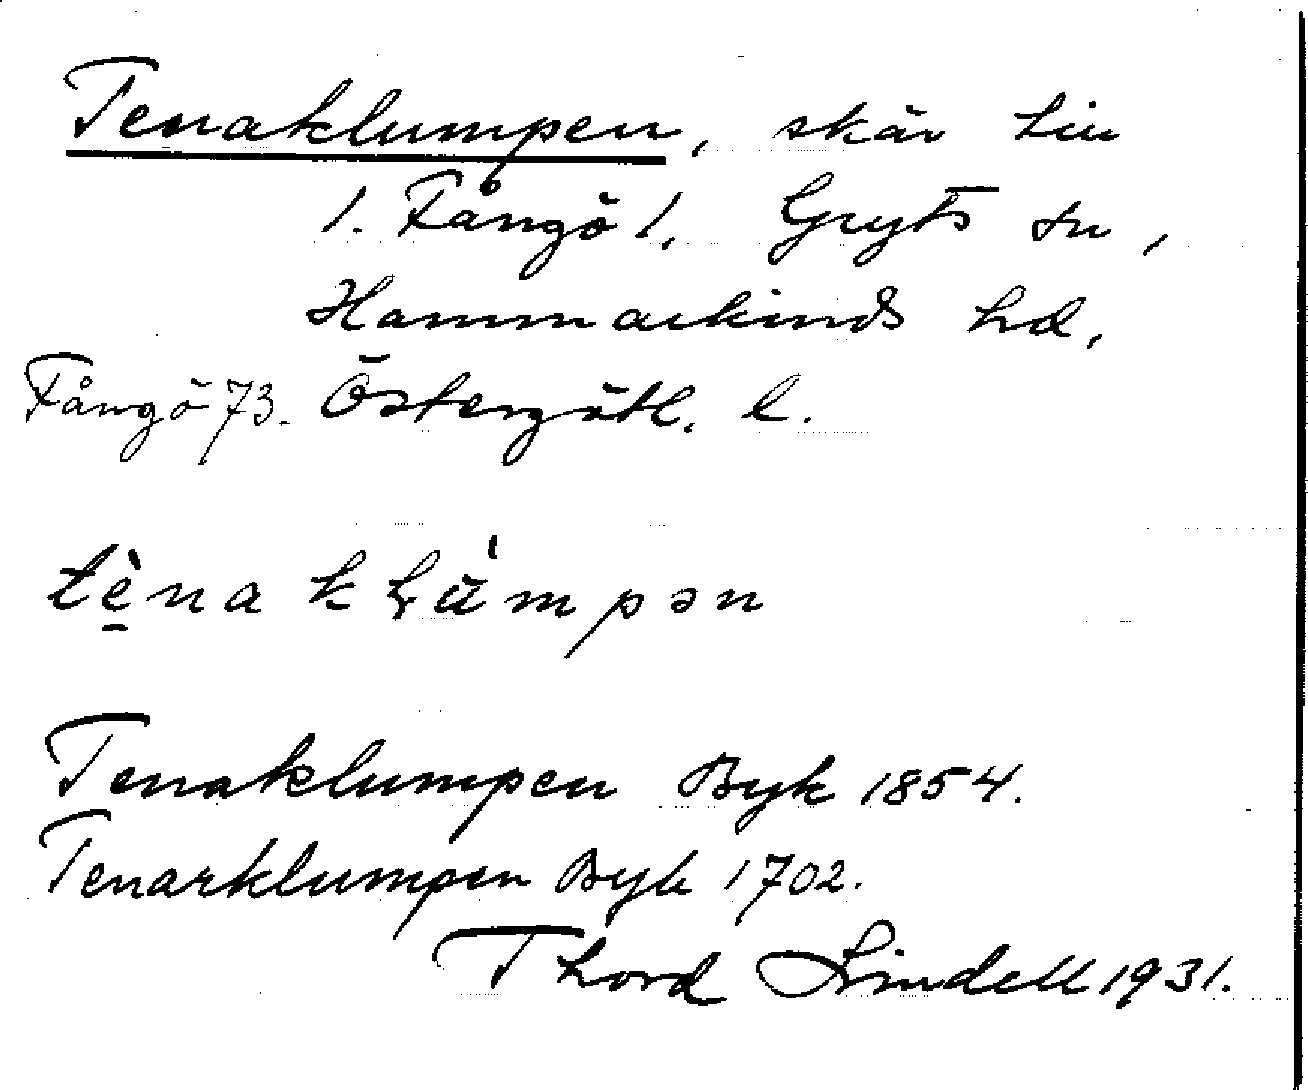 Tenaklumpen, skär hm
1. Fångö 1. Gryts sn,
Hammarkinds hd,
Fångö 73. Östergötl. l.
tèna kļŭ̀mpən
Tenaklumpen Byk 1854.
Tenarklumpen Byk 1702.
Thord Lindell 1931.